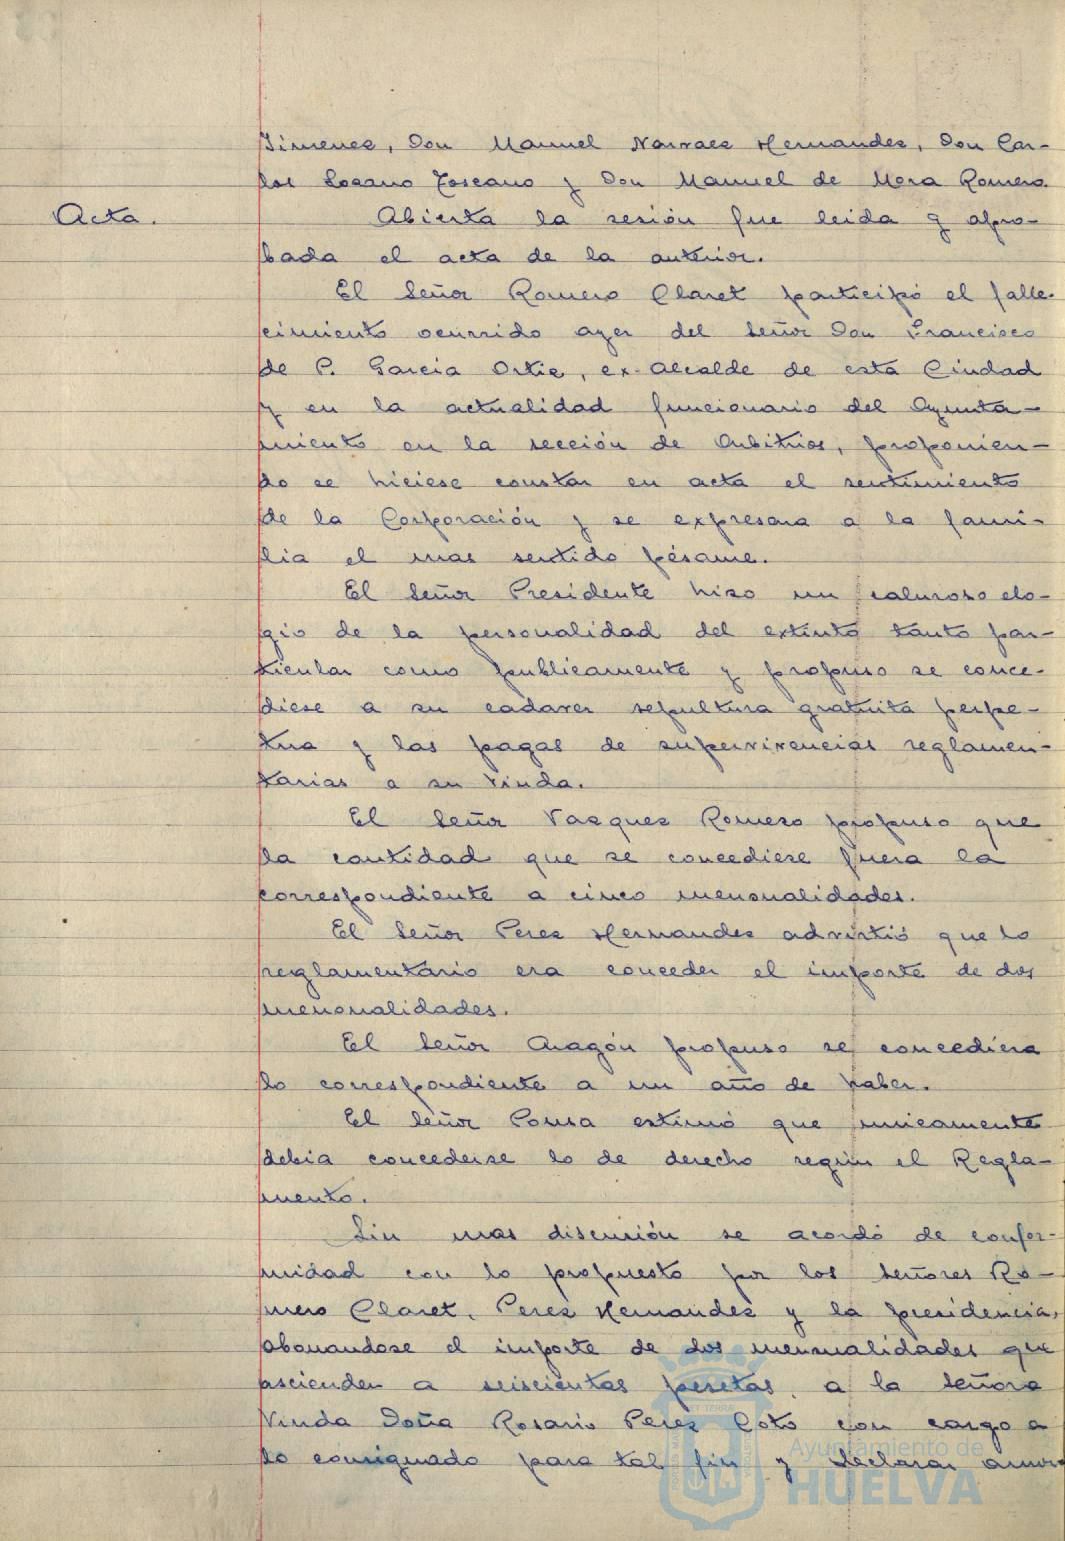 Jimenez, Don Manuel Narvaez Hernandez, Don Car-
los Lozano Toscano y Don Manuel de Mora Romero.
Acta. Abierta la sesión fue leida y apro-
bada el acta de la anterior.
El Señor Romero Claret participó el falle-
cimiento ocurrido ayer del Señor Don Francisco
de P. Garcia Ortiz, ex-Alcalde de esta Ciudad
y en la actualidad funcionario del Ayunta-
miento en la sección de Arbitrios, proponien-
do se hiciese constar en acta el sentimiento
de la Corporación y se expresara a la fami-
lia el mas sentido pésame.
El Señor Presidente hizo un caluroso elo-
gio de la personalidad del extinto tanto par-
ticular como publicamente y propuso se conce-
diese a su cadaver sepultura gratuita perpe-
tua y las pagas de supervivencias reglamen-
tarias a su viuda.
El Señor Vazquez Romero propuso que
la cantidad que se concediese fuera la
correspondiente a cinco mensualidades.
El Señor Perez Hernandez advirtió que lo
reglamentario era conceder el importe de dos
mensualidades.
El Señor Aragón propuso se concediera
lo correspondiente a un año de haber.
El Señor Pousa estimó que unicamente
debia concederse lo de derecho según el Regla-
mento.
Sin mas discusión se acordó de confor-
midad con lo propuesto por los señores Ro-
mero Claret, Perez Hernandez y la presidencia,
abonandose el importe de dos mensualidades que
ascienden a seiscientas pesetas, a la Señora
Viuda Doña Rosario Perez Coto con cargo a
lo consignado para tal fin y declarar
Ayuntamiento de
HUELVA